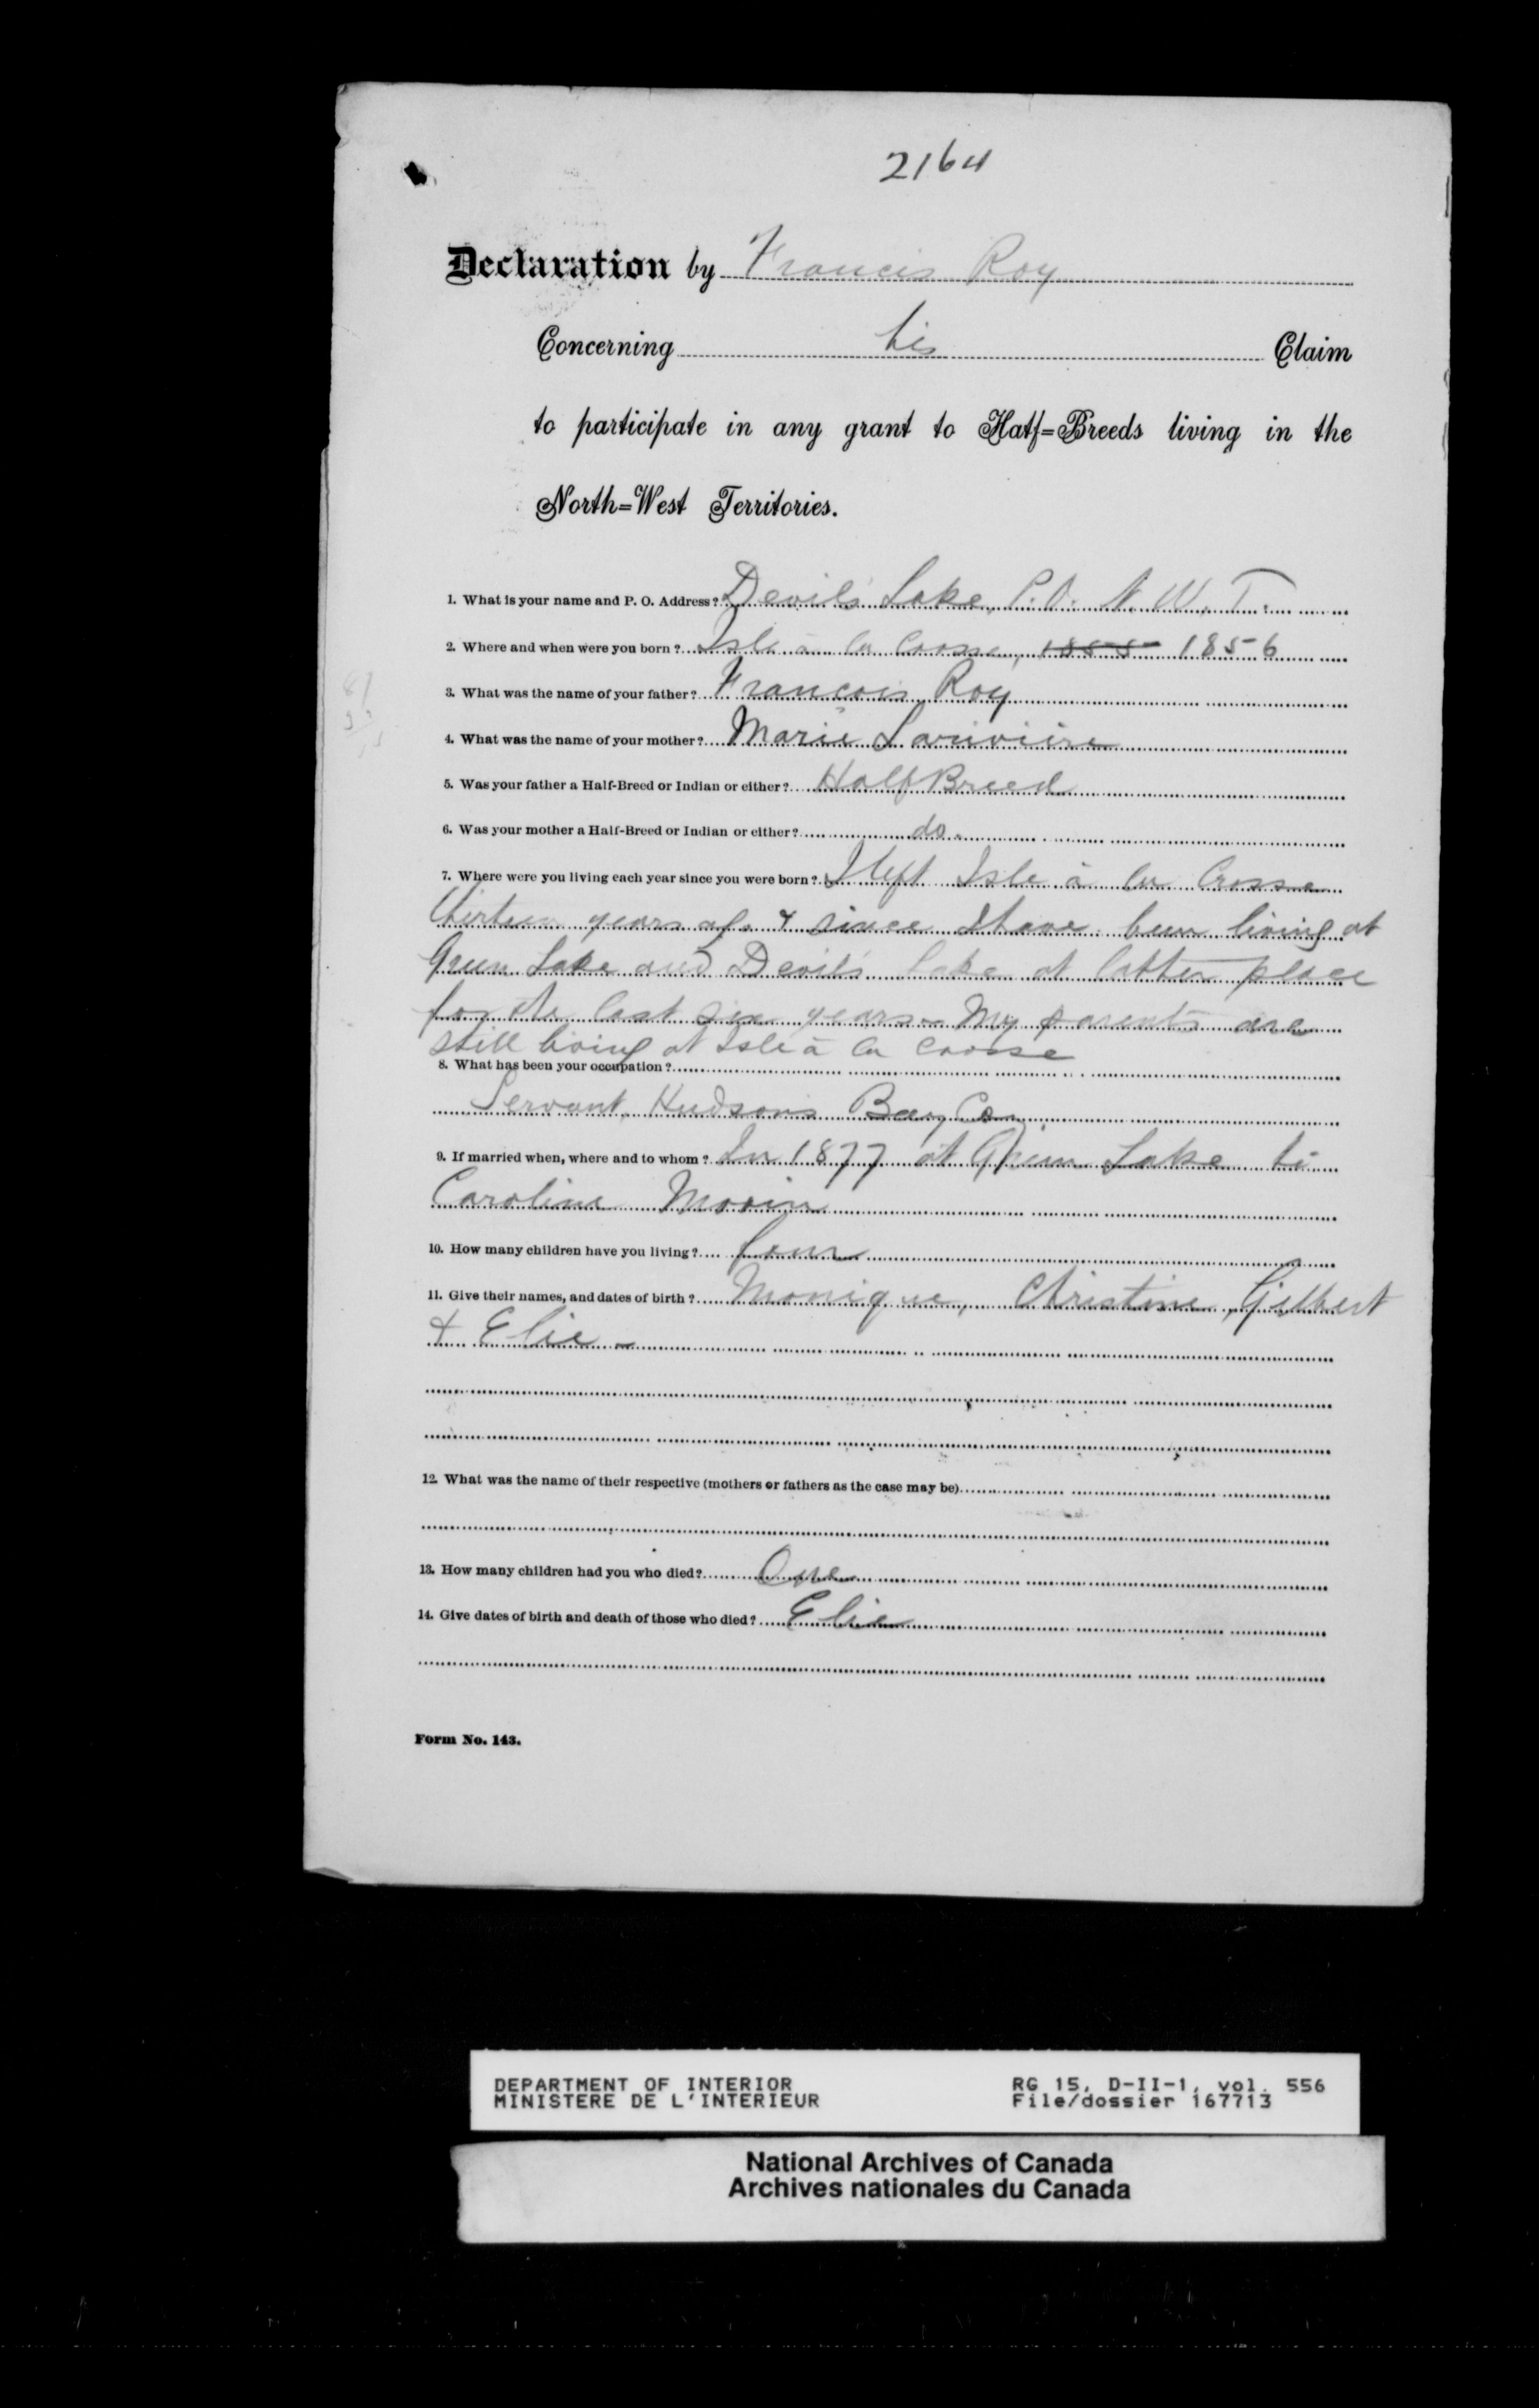 2164
Declaration by Francis Roy
Concerning his Claim
to participate in any grant to Half=Breeds living in the
North=West Territories.
1. What is your name and P. O. Address? Devils Lake, P.O. N.W.T.
2. Where and when were you born? Isle à la Crosse, 1855 1856
3. What was the name of your father? Francois Roy
4. What was the name of your mother? Marie Lariviere
5. Was your father a Half-Breed or Indian or either? Half Breed
6. Was your mother a Half-Breed or Indian or either? do.
7. Where were you living each year since you were born? I left Isle à la Crosse
thirteen years ago & since I have been living at
Green Lake and Devils Lake at latter place
for the last six years - My parents are
still living at Isle à la Crosse
8. What has been your occupation?
Servant, Hudsons Bay Co.
9. If married when, where and to whom? In 1877 at Green Lake to
Caroline Morin
10. How many children have you living? four
11. Give their names, and dates of birth? Monique, Christine, Gilbert
& Elie -
12. What was the name of their respective (mothers or fathers as the case may be)
13. How many children had you who died? One
14. Give dates of birth and death of those who died? Elie
Form No. 143.
DEPARTMENT OF INTERIOR RG 15, D-II-1, vol. 556
MINISTERE DE L'INTERIEUR File/dossier 167713
National Archives of Canada
Archives nationales du Canada